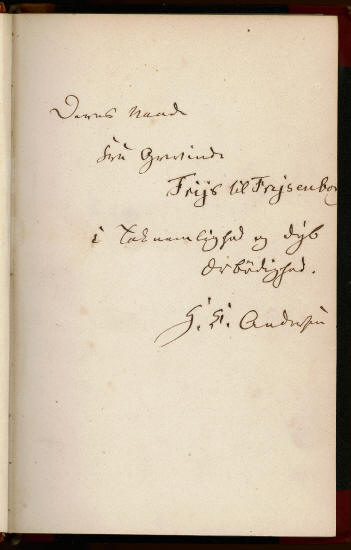 Deres Naade
Fru Grevinde
Frijs til Frijsenborg
i Taknemlighed og dyb
Ærbødighed.
H. C. Andersen